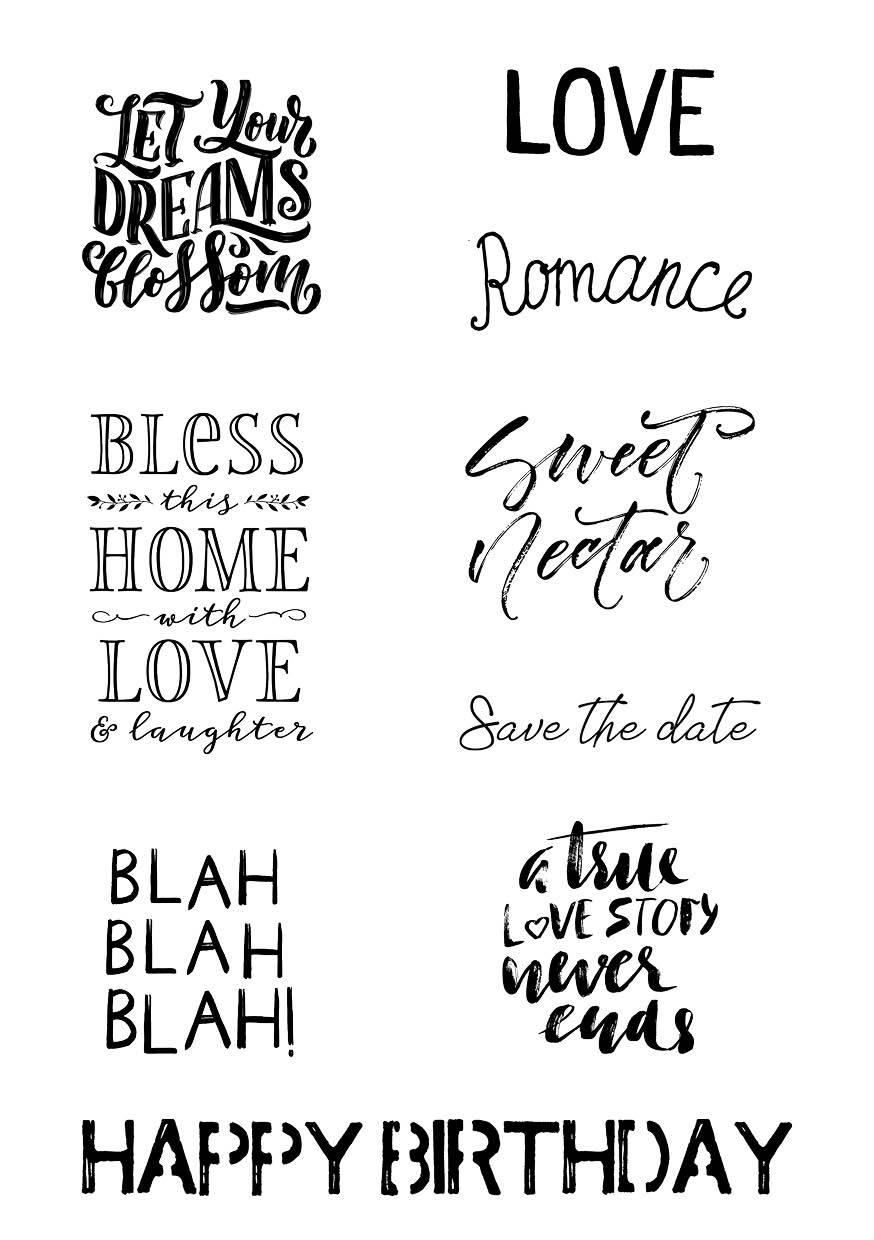 LET Your
DREAMS
blossom
LOVE
Romance
BLeSS
this
HOME
with
LOVE
& laughter
Sweet
Nectar
Save the date
BLAH
BLAH
BLAH!
a true
LOVE STORY
never
ends
HAPPY BIRTHDAY